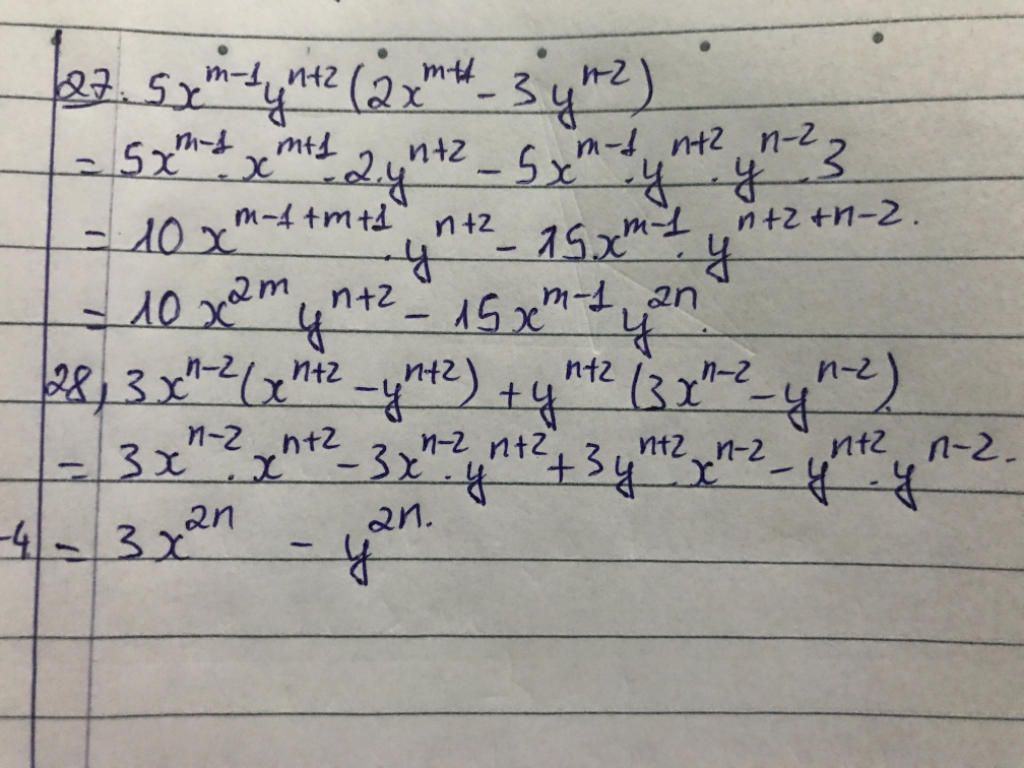 27. 5x^{m-1}y^{n+2}(2x^{m+1} - 3y^{n-2})
= 5x^{m-1}.x^{m+1}.2.y^{n+2} - 5x^{m-1}.y^{n+2}.y^{n-2}.3
= 10x^{m-1+m+1}.y^{n+2} - 15.x^{m-1}.y^{n+2+n-2}.
= 10x^{2m}y^{n+2} - 15x^{m-1}y^{2n}.
28, 3x^{n-2}(x^{n+2} - y^{n+2}) + y^{n+2}(3x^{n-2} - y^{n-2}).
= 3x^{n-2}.x^{n+2} - 3x^{n-2}.y^{n+2} + 3y^{n+2}.x^{n-2} - y^{n+2}.y^{n-2}.
-4 = 3x^{2n} - y^{2n}.